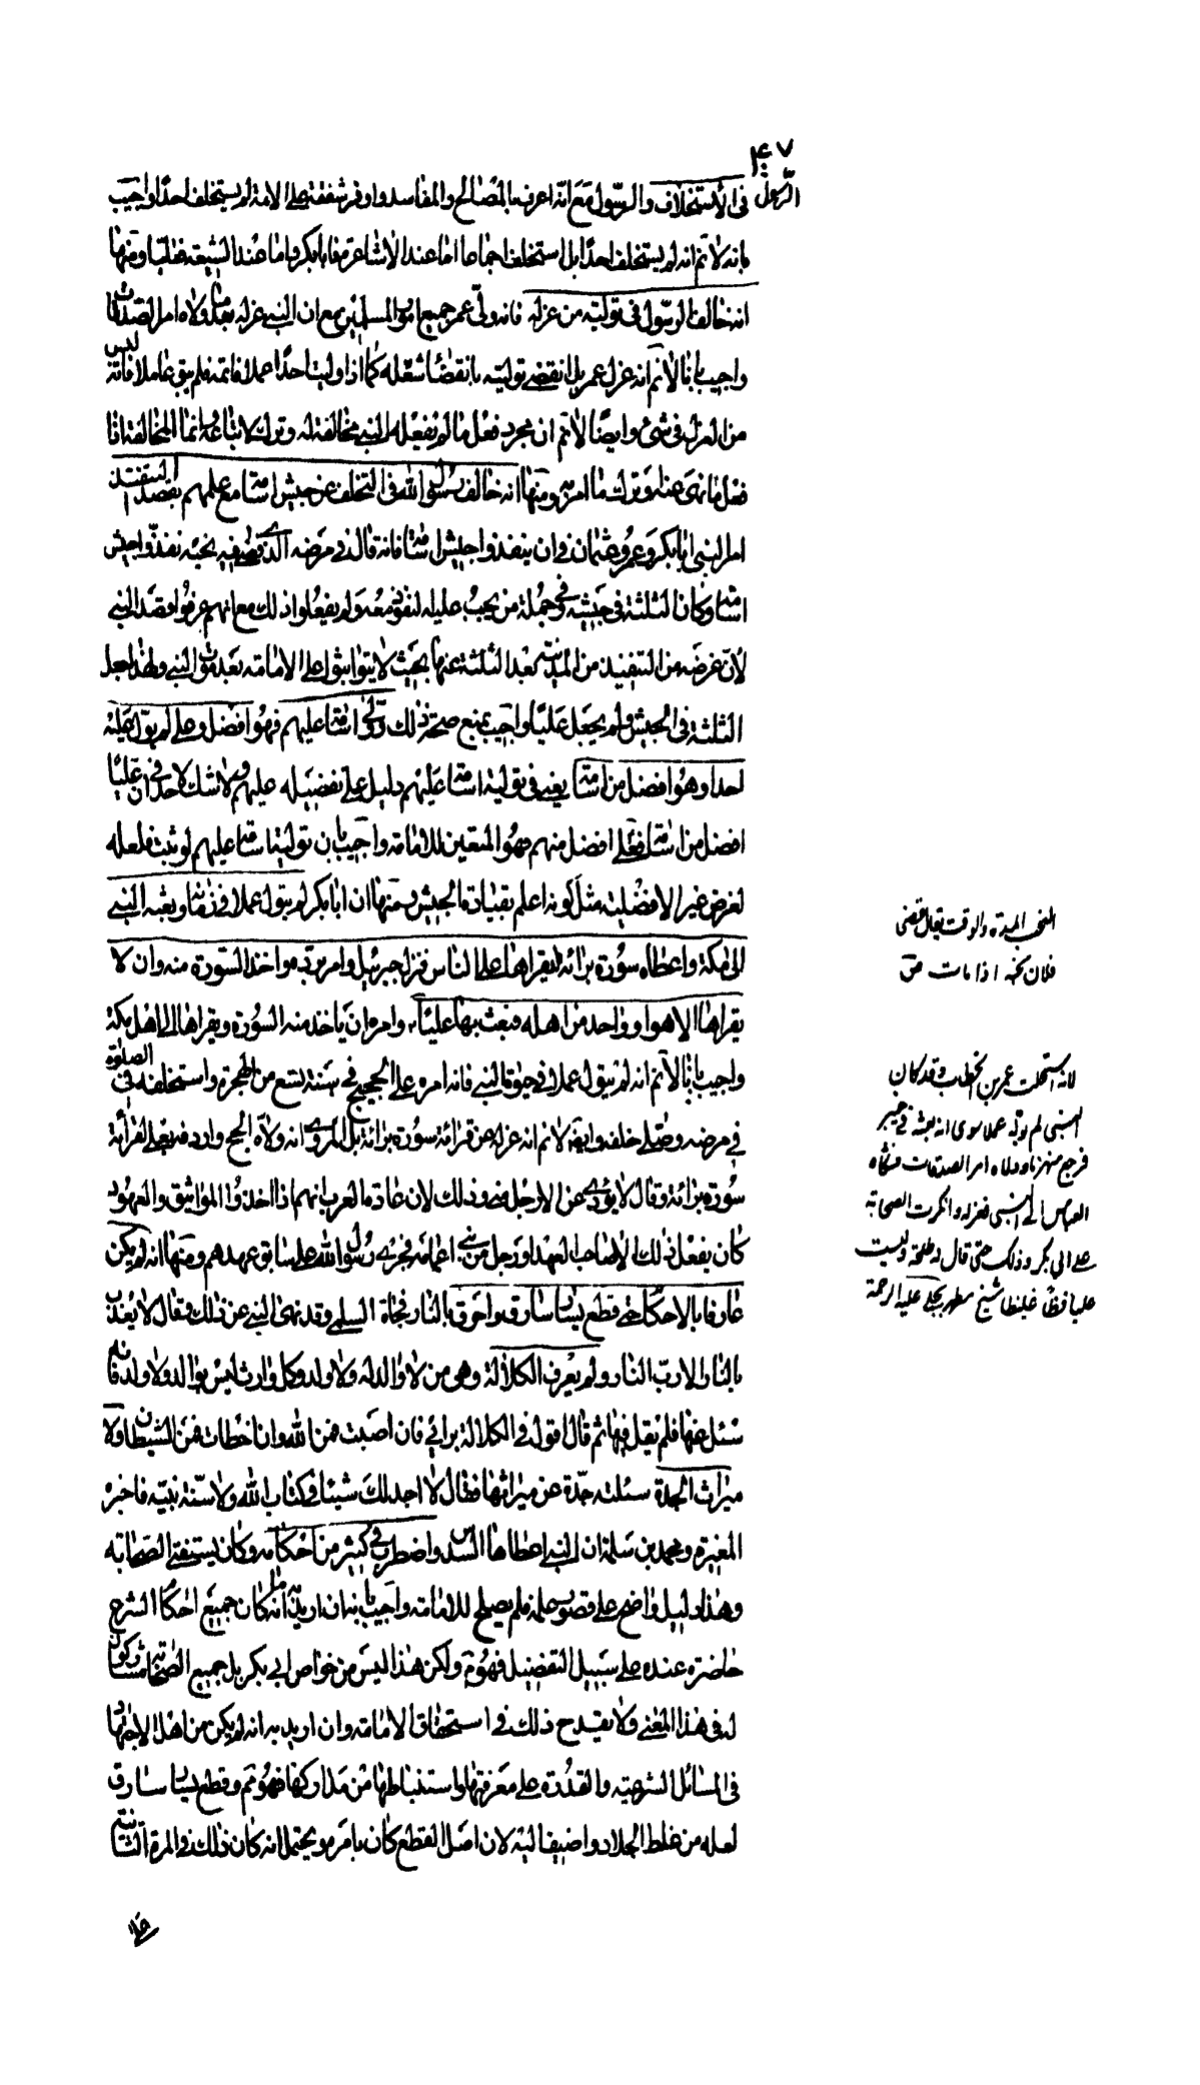 ۴۰۷
الرسول فى الاستخلاف والرسول مع انه اعرف بالمصالح والمفاسد واوفر شفقة على الامة لم يستخلف احدا واجيب
بانه لا نم انه لم يستخلف احدا بل استخلف اجماعا اما عند الاشاعرة فابابكر واما عند الشيعة فعليا ومنها
انه خالف الرسول فى توليته من عزله فانه ولى عمر جميع امور المسلمين مع ان النبى عزله بعد ما ولاه امر الصدقات
واجيب بانا لا نم انه عزل عمر بل انقضى توليته بانقضاء شغله كما اذا وليت احدا عملا فاتمه فلم يبق عاملا فانه ليس
من العزل فى شئ وايضا لا نم ان مجرد فعل ما لم يفعله النبى مخالفة له وترك لاتباعه وانما المخالفة اذا
فعل ما نهى عنه او ترك ما امر به ومنها انه خالف رسول الله فى التخلف عن جيش اسامة مع علمهم بقصد التنفيذ
امر النبى ابابكر وعمر وعثمان فى ان ينفذوا جيش اسامة فانه قال فى مرضه الذى قضى فيه نحبه نفذوا جيش
اسامة وكان الثلثة فى جيشه وفى جملة من يجب عليه النفوذ معه ولم يفعلوا ذلك مع انهم عرفوا قصد النبى
لان غرضه من التنفيذ من المدينة بعد الثلثة عنها بحيث لا يتواثبوا على الامامة بعد موت النبى ولهذا جعل
الثلثة فى الجيش ولم يجعل عليا واجيب بمنع صحة ذلك وولى اسامة عليهم فهو افضل وعلى لم يول عليه
احد وهو افضل من اسامة يعنى فى تولية اسامة عليهم دليل على تفضيله عليهم ولا شك لاحد فى ان عليا
افضل من اسامة فعلى افضل منهم فهو المتعين للامامة واجيب بان تولية اسامة عليهم لو ثبت فلعله
لغرض غير الافضلية مثل كونه اعلم بقيادة الجيش ومنها ان ابابكر لم يتول عملا فى زمانه وبعثه النبى
الى مكة واعطاه سورة برائة ليقراها على الناس فنزل جبرئيل وامر برده واخذ السورة منه وان لا
يقراها الا هو او واحد من اهله فبعث بها عليا وامره ان ياخذ منه السورة ويقراها الى اهل مكة
واجيب بانا لا نم انه لم يتول عملا فى حيوة النبى فانه امره على الحجيج فى سنة تسع من الهجرة واستخلفه فى الصلوة
فى مرضه وصلى خلفه وايضا لا نم انه عزله عن قرائة سورة برائة بل المروى انه ولاه الحج واردفه بعلى لقرائة
سورة برائة وقال لا يؤدى عنى الا رجل منى وذلك لان عادة العرب انهم اذا اخذوا المواثيق والعهود
كان يفعل ذلك الا صاحب العهد او رجل من بنى اعمامه فجرى رسول الله على سابق عهدهم ومنها انه لم يكن
عارفا بالاحكام حتى قطع يسار سارق واحرق بالنار فجاءة السلمى وقد نهى النبى عن ذلك فقال لا يعذب
بالنار الا رب النار ولم يعرف الكلالة وهى من لا والد له ولا ولد وكل وارث ليس بوالد ولا ولد فانه
سئل عنها فلم يقل فيها ثم قال اقول فى الكلالة برائى فان اصبت فمن الله وان اخطات فمن الشيطان ولا
ميراث الجدة سئلته جدة عن ميراثها فقال لا اجد لك شيئا فى كتاب الله ولا سنة نبيه فاخبره
المغيرة ومحمد بن سلمة ان النبى اعطاها السدس واضطرب فى كثير من احكامه وكان يستفتى الصحابة
وهذا دليل واضح على قصور علمه فلم يصلح للامامة واجيب بانه ان اريد به انه ما كان جميع احكام الشرع
حاضرة عنده على سبيل التفصيل فهو مم ولكن هذا ليس من خواص ابى بكر بل جميع الصحابة مشاركون
له فى هذا المعنى ولا يقدح ذلك فى استحقاق الامامة وان اريد به انه لم يكن من اهل الاجتهاد
فى المسائل الشرعية والقدرة على معرفتها واستنباطها من مداركها فهو مم وقطع يسار سارق
لعله من غلط الجلاد واضيف اليه لان اصل القطع كان بامره ويحتمل انه كان ذلك فى المرة الثانية
النحب المدة والوقت يقال قضى
فلان نحبه اذا مات ص
لانه استخلف عمر بن الخطاب وقد كان
النبى لم يوله عملا سوى انه بعثه فى خيبر
فرجع منهزما وولاه امر الصدقات فشكاه
العباس الى النبى فعزله وانكرت الصحابة
على ابى بكر وذلك حتى قال له طلحة وليت
علينا فظا غليظا شيخ مطهر حلى عليه الرحمة